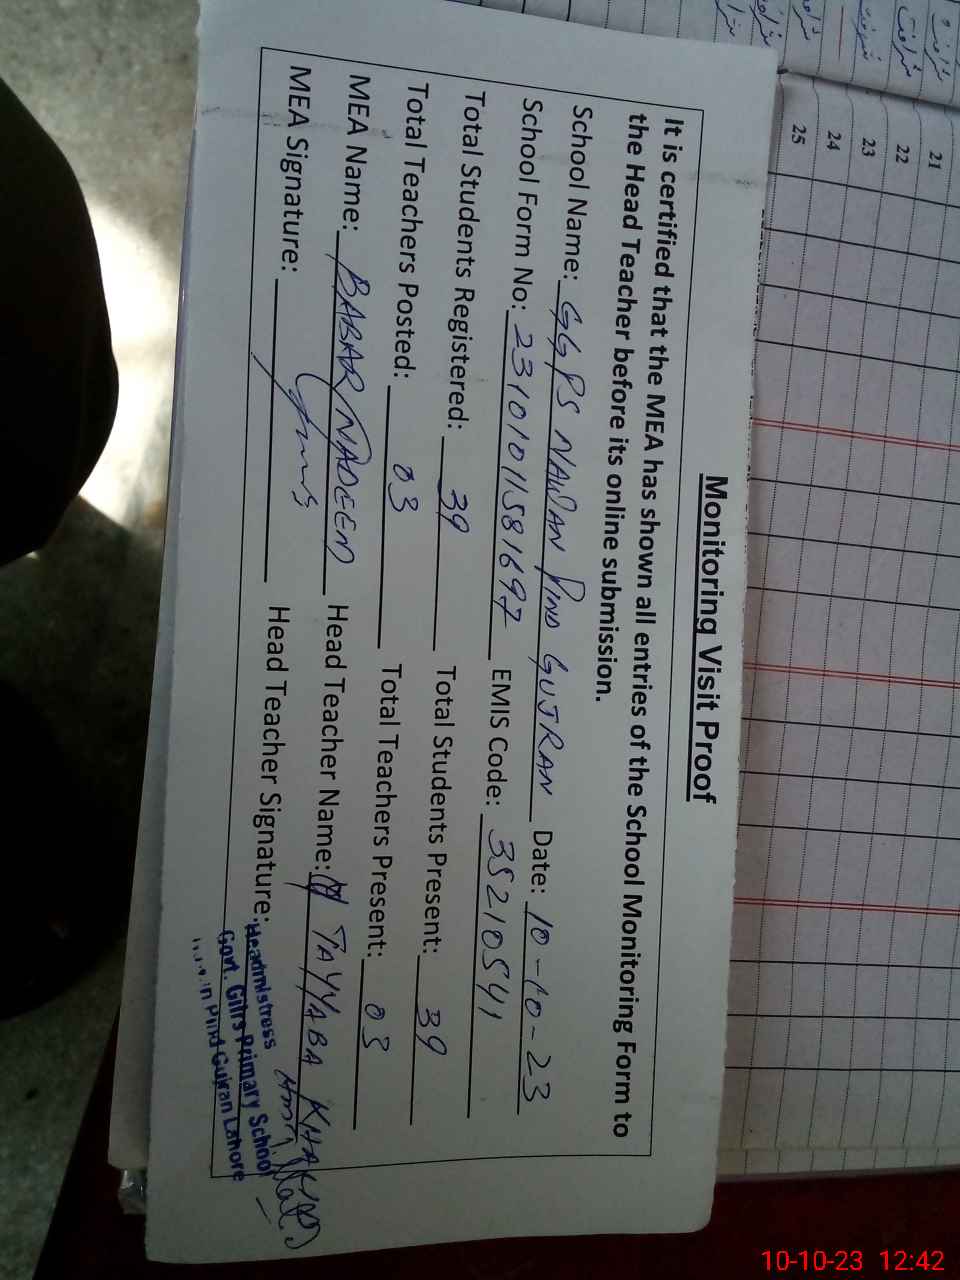 Monitoring Visit Proof
It is certified that the MEA has shown all entries of the School Monitoring Form to
the Head Teacher before its online submission.
School Name: GGPS NAWAN PIND GUJRAN Date: 10-10-23
School Form No: 23101011581697 EMIS Code: 35210541
Total Students Registered: 39 Total Students Present: 39
Total Teachers Posted: 03 Total Teachers Present: 03
MEA Name: BABAR NADEEM Head Teacher Name: TAYYABA
MEA Signature: Head Teacher Signature:
Headmistress
Govt. Gilrs Primary School
Pind Gujran Lahore
21
22
23
24
25
10-10-23 12:42